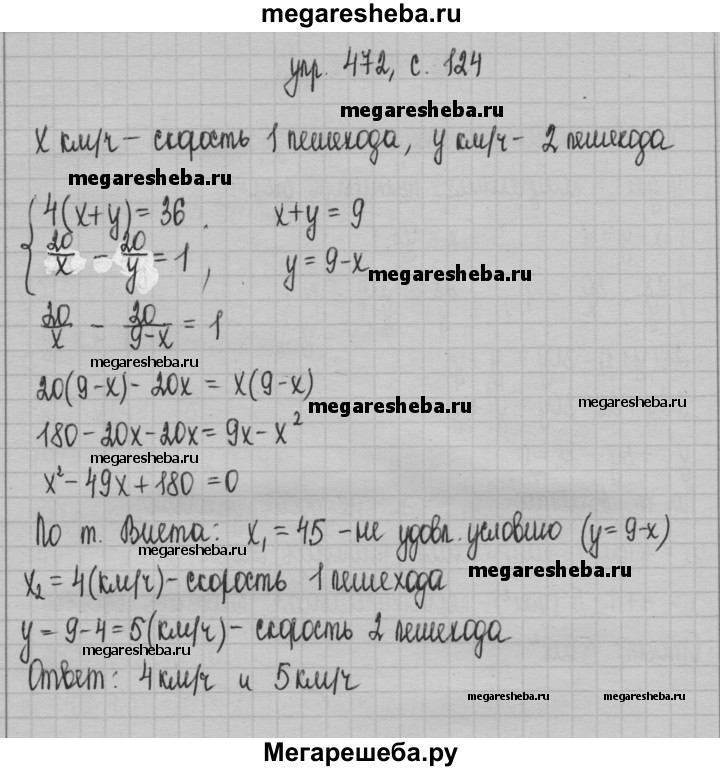 megaresheba.ru
упр. 472, с. 124
megaresheba.ru
x км/ч – скорость 1 пешехода, y км/ч – 2 пешехода
megaresheba.ru
4(x+y)=36. x+y=9
20/x – 20/y = 1, y=9-x megaresheba.ru
20/x – 20/(9-x) = 1
megaresheba.ru
20(9-x) – 20x = x(9-x)
megaresheba.ru megaresheba.ru
180-20x-20x=9x-x²
megaresheba.ru
x²-49x+180=0
По т. Виета: x₁=45 – не удовл. условию (y=9-x)
megaresheba.ru megaresheba.ru
x₂=4(км/ч) – скорость 1 пешехода megaresheba.ru
y=9-4=5(км/ч) – скорость 2 пешехода
megaresheba.ru
Ответ: 4км/ч и 5км/ч
megaresheba.ru megaresheba.ru
Мегарешеба.ру